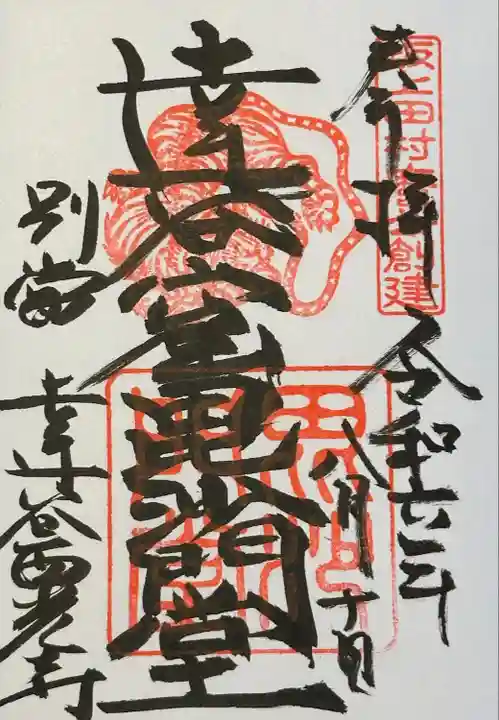 坂上田村 創建
奉拝 令和六年
八月十日
達谷窟毘沙門堂
別當
達谷西光寺